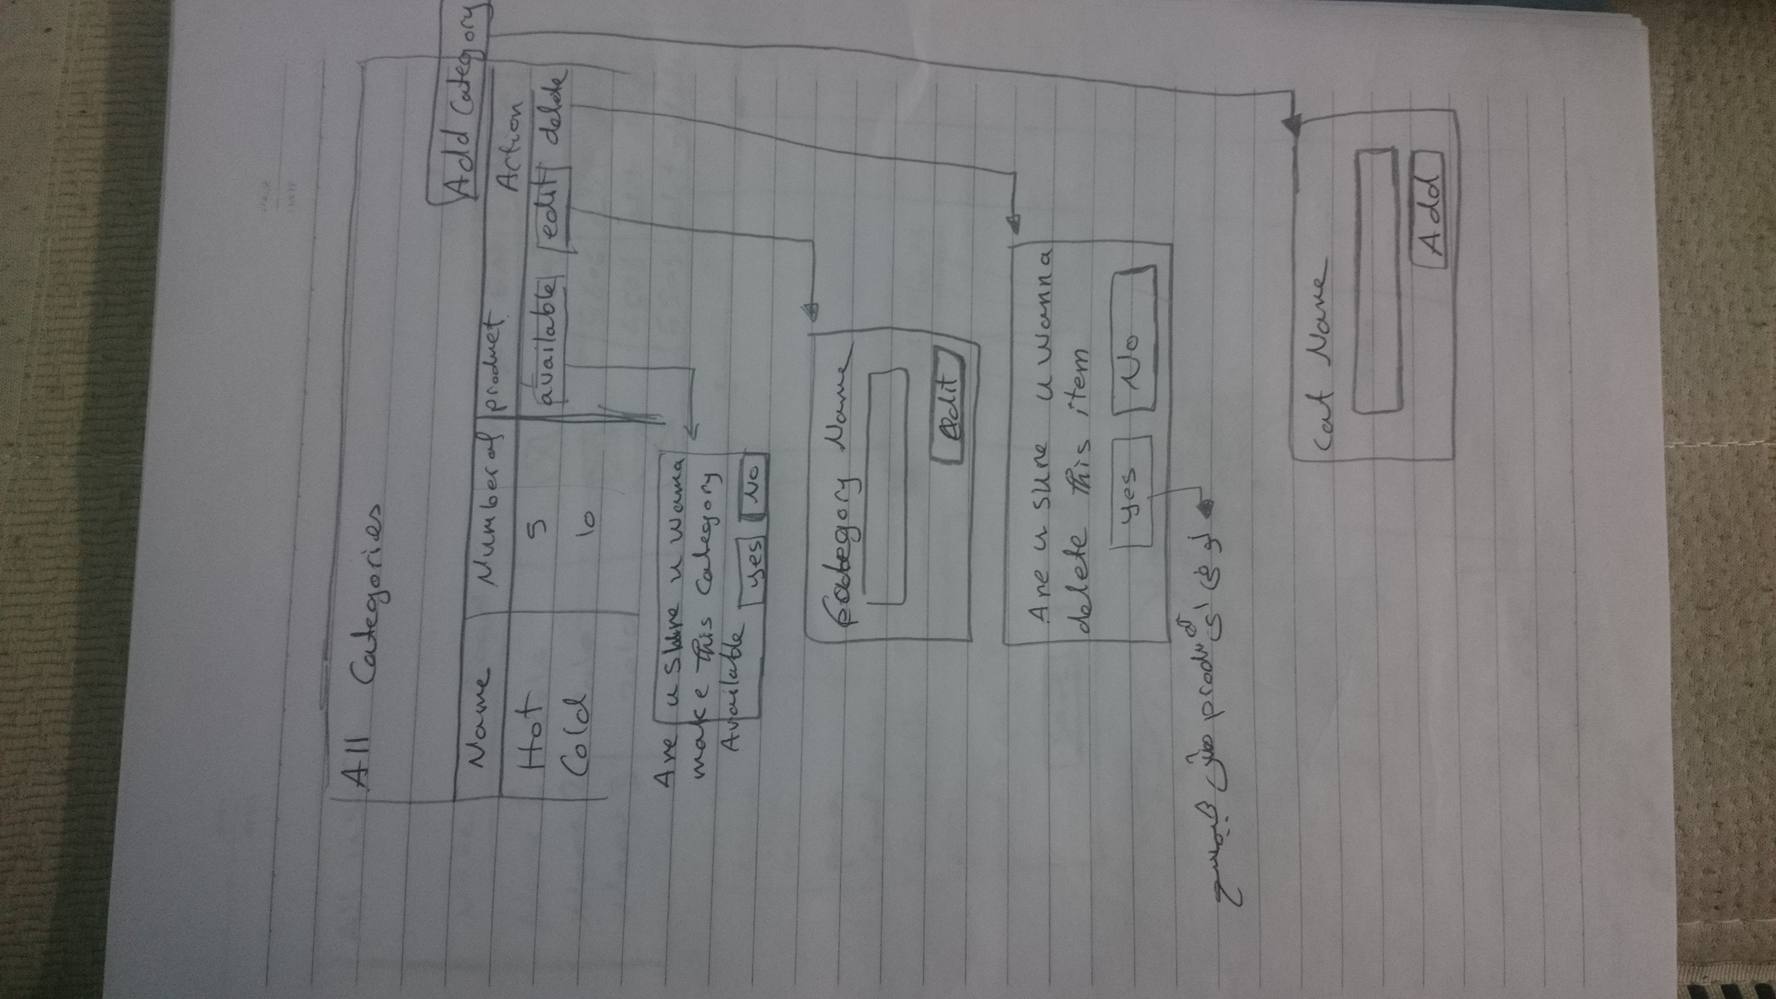 All Categories
Add Category
Name Number of product Action
Hot 5 available edit delete
Cold 10
Are u shure u wanna
make this category
Available yes No
Category Name
edit
Are u shure u wanna
delete this item
yes No
لو في اى product
Cat Name
Add